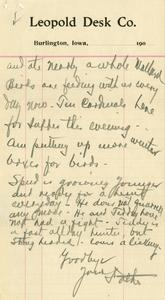 Leopold Desk Co.
Burlington, Iowa, 190
and ate nearly a whole
Birds are feeding with us every
day now. Ten Cardinals here
for supper this evening -
Am putting up more winter
boxes for birds.
Sped is growing younger
and hopes for a hunt
everyday - He does not quarrel
any more. He and Teddy have
not had a fight. Teddy is
a fast all day hunter, but
Good bye
Your